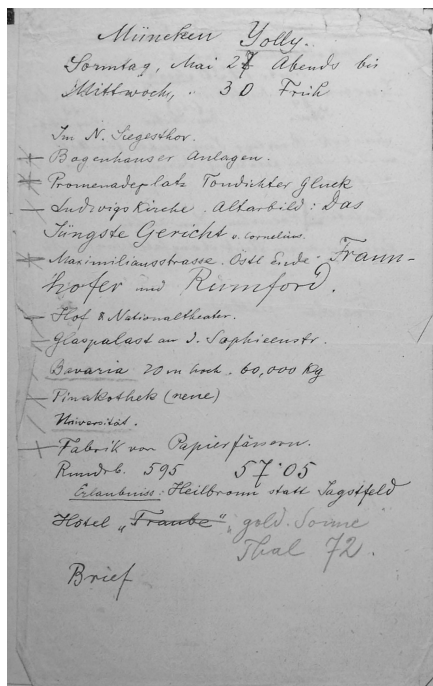 München Yolly.
Sonntag, Mai 27 Abends bis
Mittwoch, . 30 Früh
Im N. Siegesthor.
Bogenhauser Anlagen.
Promenadeplatz Tondichter Gluck
Ludwigskirche. Altarbild: Das
Jüngste Gericht v. Cornelius.
Maximiliansstrasse. Ostl Ende. Fraun-
hofer und Rumford.
Hof & Nationaltheater.
Glaspalast an d. Sophienstr.
Bavaria 20 m hoch. 60,000 Kg
Pinakothek (neue)
Universität.
Fabrik von Papierfässern.
Rundrb. 595 57'05
Erlaubniss: Heilbronn statt Jagstfeld
Hotel „Traube“ gold. Sonne
Thal 72.
Brief